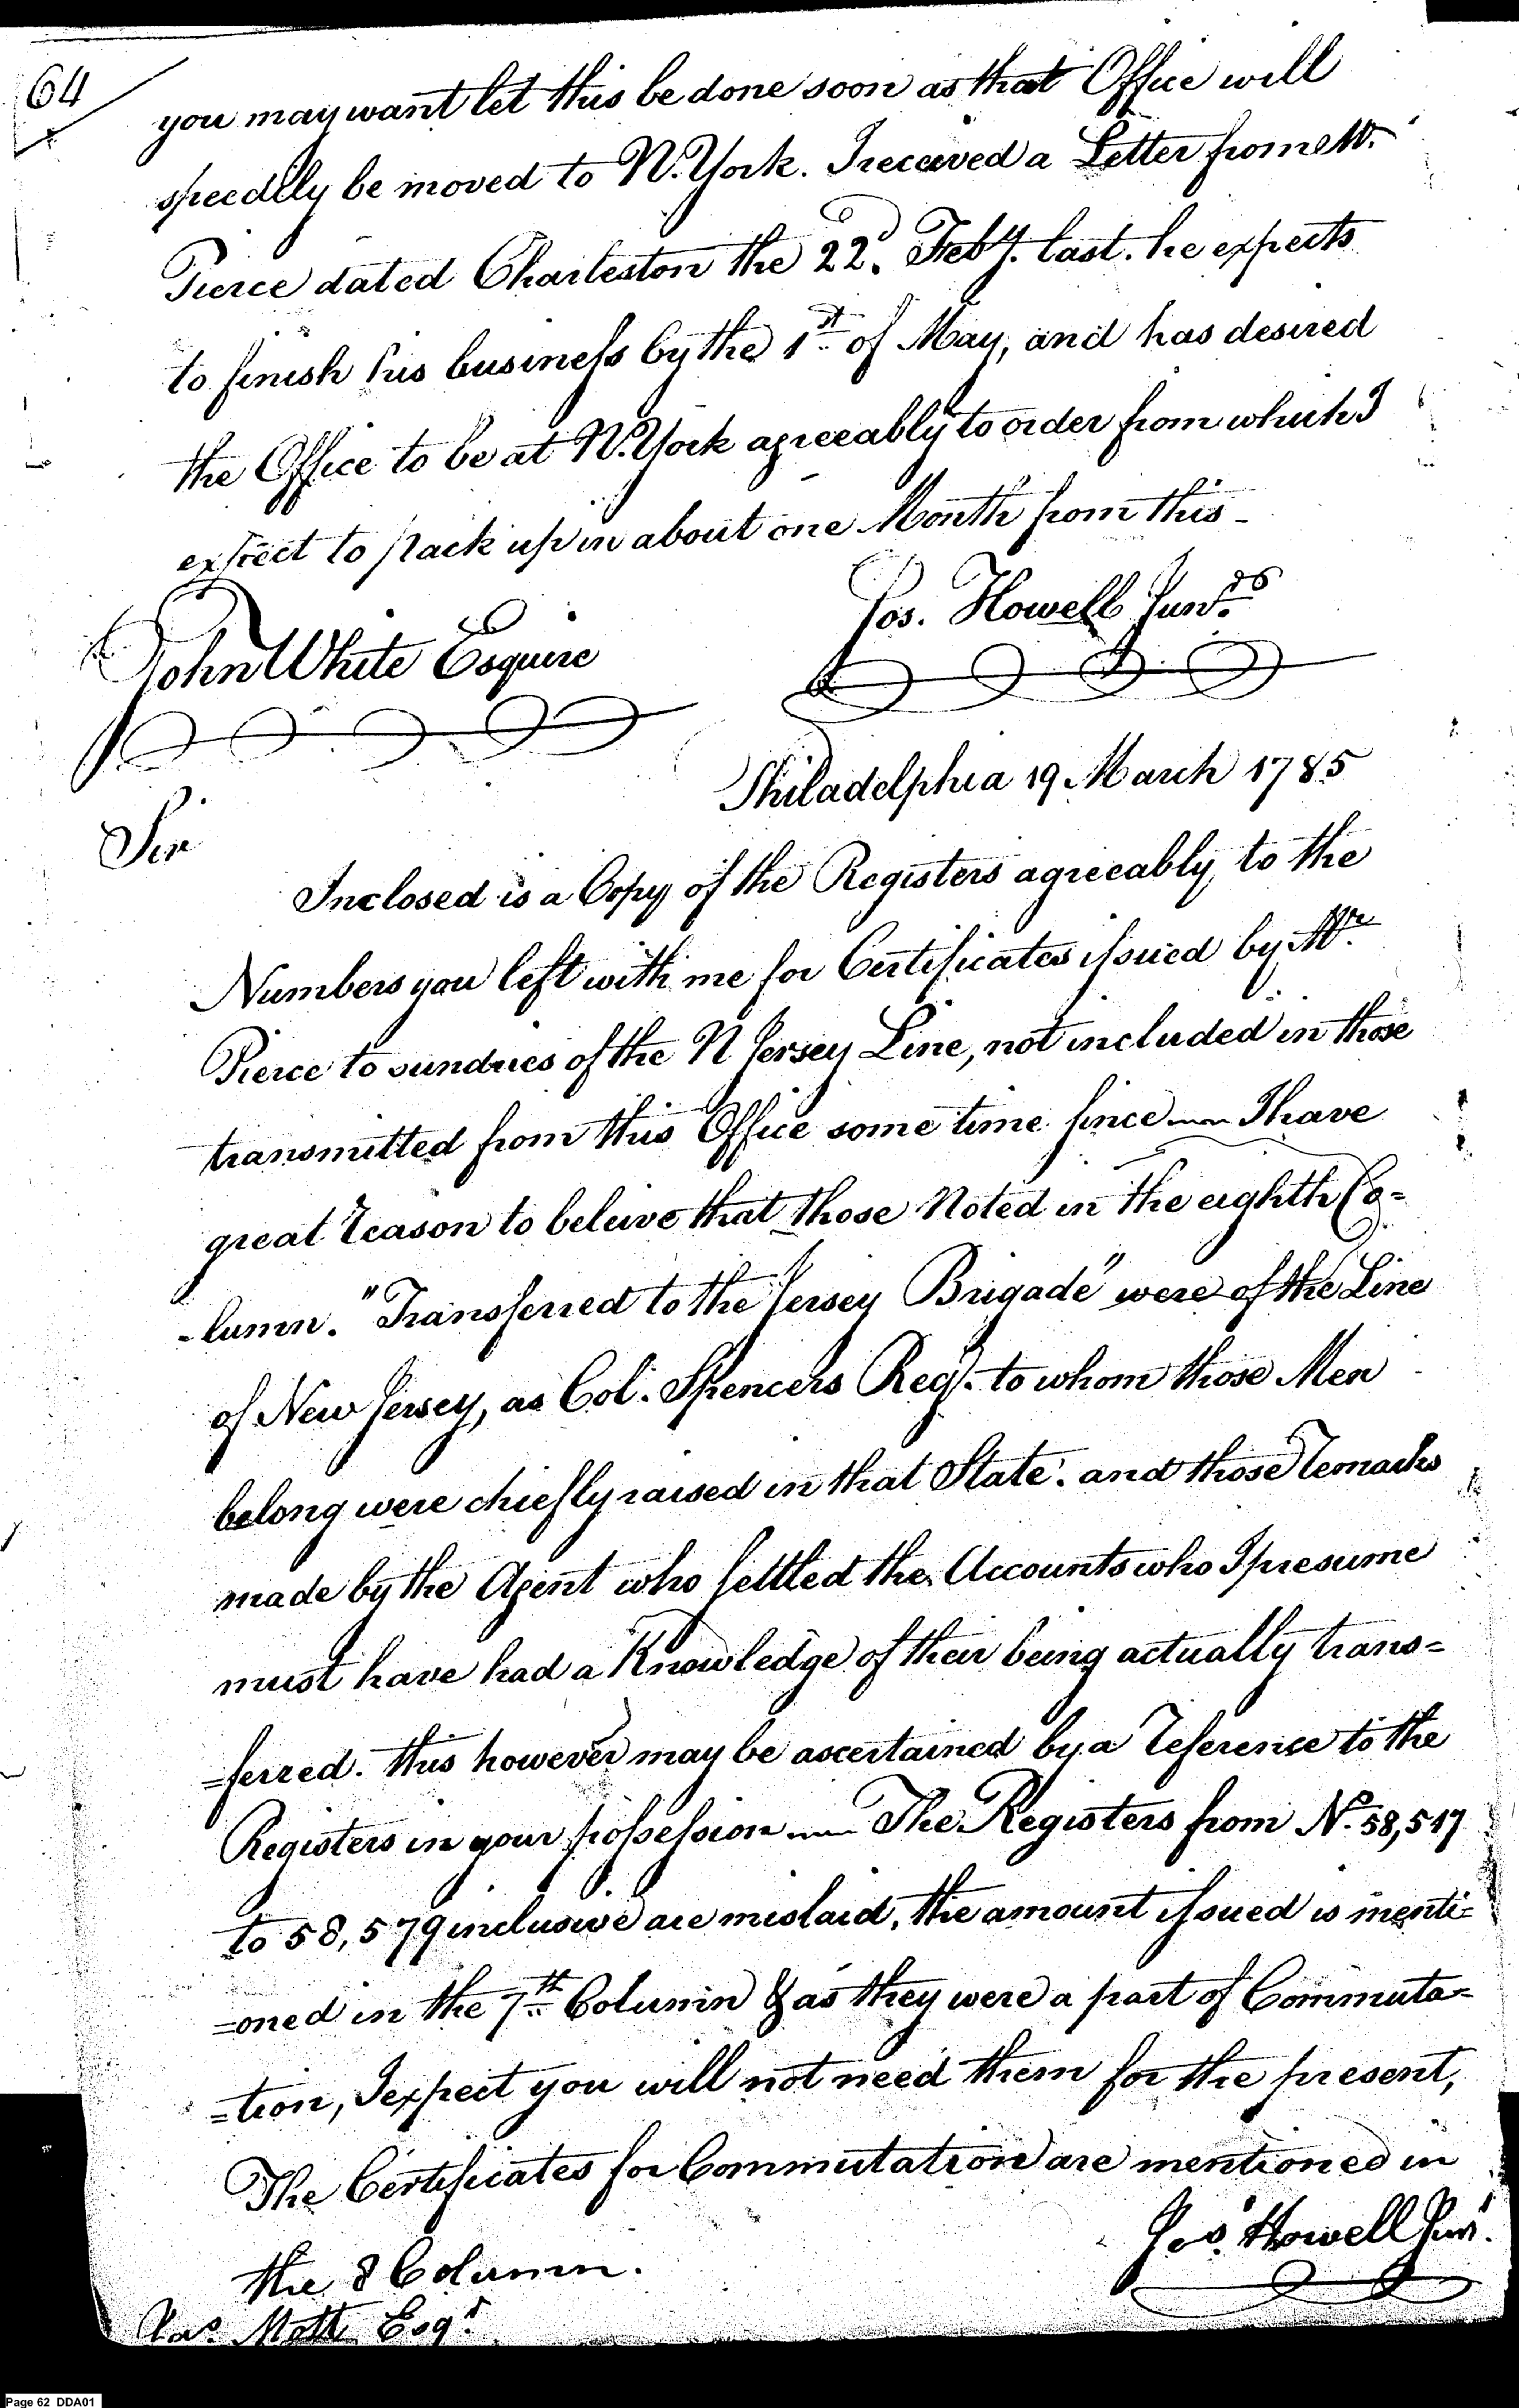 64
you may want let this be done soon as that Office will
speedily be moved to N. York. I received a Letter from Mr.
Pierce dated Charleston the 22d. Feby. last. he expects
to finish his business by the 1st of May, and has desired
the Office to be at N. York agreeably to order from which I
expect to pack up in about one Month from this –
Jos. Howell Junr.
John White Esquire
Philadelphia 19 March 1785
Sir
Inclosed is a Copy of the Registers agreeably to the
Numbers you left with me for Certificates issued by Mr.
Pierce to sundries of the N Jersey Line, not included in those
transmitted from this Office some time since — I have
great reason to beleive that those Noted in the eighth Co=
-lumn. "Transferred to the Jersey Brigade" were of the Line
of New Jersey, as Col. Spencers Regt. to whom those Men
belong were chiefly raised in that State. and those remarks
made by the Agent who settled the Accounts who I presume
must have had a Knowledge of their being actually trans=
=ferred. this however may be ascertained by a reference to the
Registers in your possession — The Registers from No. 58,517
to 58,579 inclusive are mislaid, the amount issued is menti=
=oned in the 7th Column & as they were a part of Commuta=
=tion, I expect you will not need them for the present,
The Certificates for Commutation are mentioned in
the 8 Column.
Jos. Howell Junr.
Mott Esqr.
Page 62 DDA01